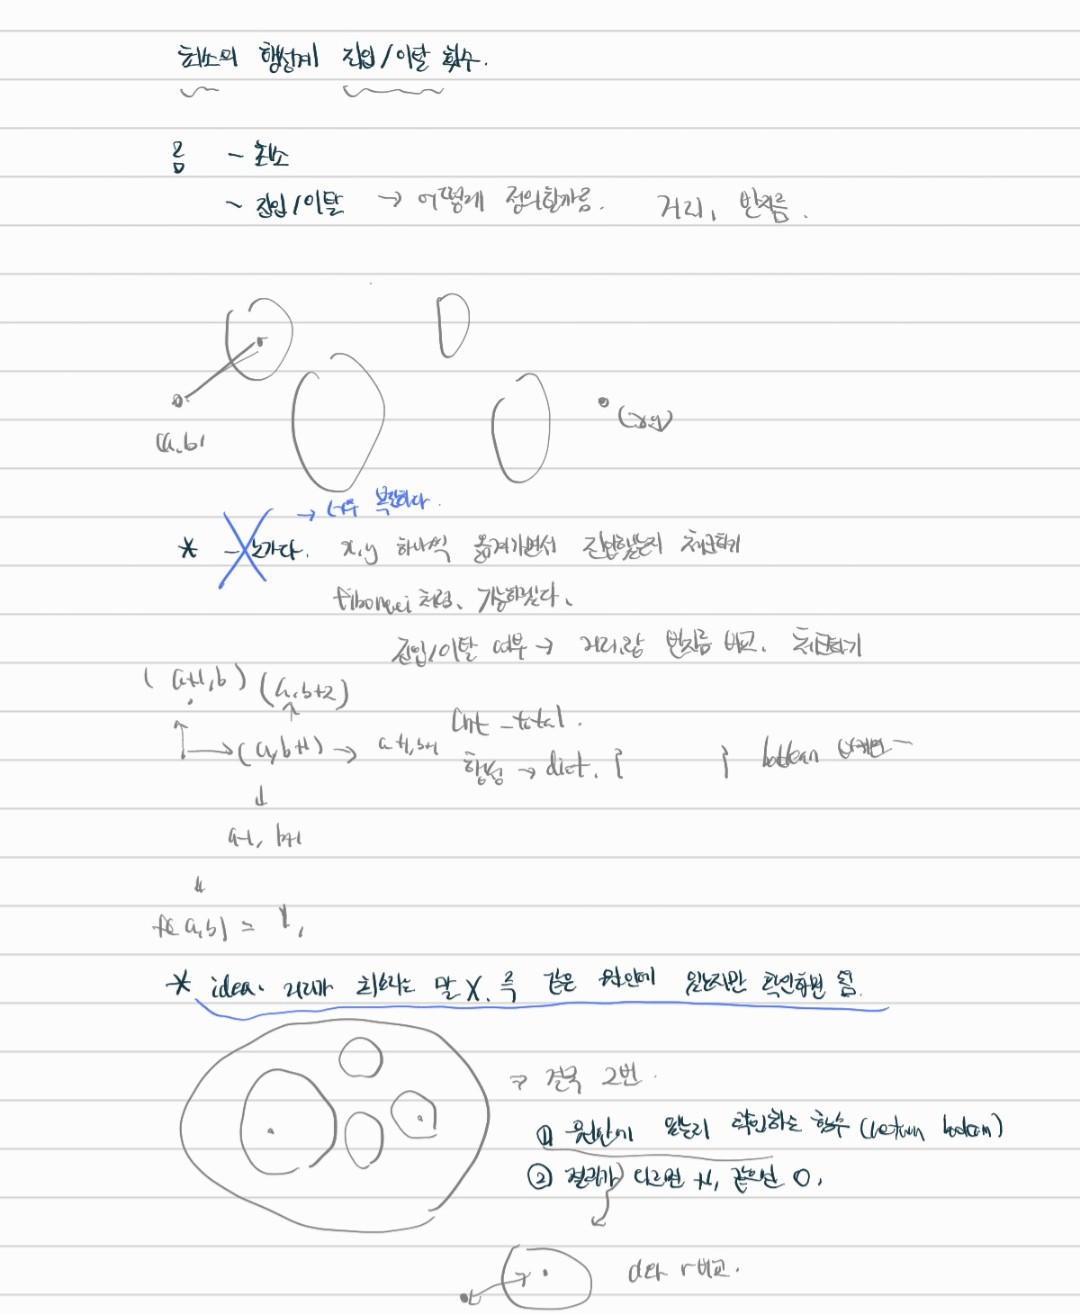 최소의 행성계 진입/이탈 횟수.
음 - 최소
- 진입/이탈 → 어떻게 정의할까를. 거리, 반지름.
(a,b)
(x,y)
→ 너무 복잡하다.
* - 노가다. x,y 하나씩 옮겨가면서 진입했는지 체크하기
fibonacci 처럼. 가능하겠다.
진입/이탈 여부 → 거리랑 반지름 비교. 체크하기
(a+1,b) (a,b+2)
(a,b+1) → a+1,b+1
Cnt_total.
행성 → dict. { } boolean
a-1, b+1
f(a,b) = 1,
* idea. 거리가 최소라는 말 X. 즉 같은 원안에 있는지만 확인하면 됨.
⇒ 결국 2번.
① 원안에 있는지 확인하는 함수 (return boolean)
② 결과가 다르면 +1, 같으면 0,
d와 r비교.